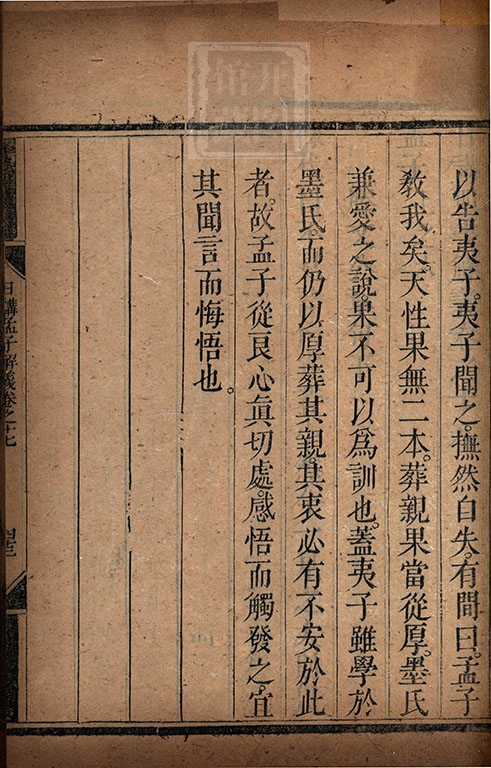 以告夷子。夷子聞之。憮然自失。有間曰。孟子
教我矣。天性果無二本。葬親果當從厚。墨氏
兼愛之說。果不可以爲訓也。蓋夷子雖學於
墨氏。而仍以厚葬其親。其衷必有不安於此
者。故孟子從良心眞切處。感悟而觸發之。宜
其聞言而悔悟也。
日講孟子解義卷之十七